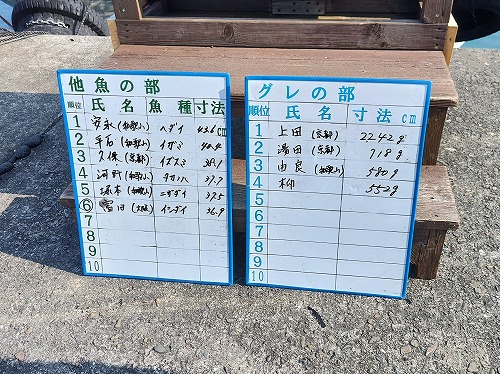 他魚の部
順位 氏名 魚種 寸法
1 安永(和歌山) ヘダイ 43.6 cm
2 平石(和歌山) イガミ
3 久保(京都) イズスミ 38.1
4 河野(和歌山) タカノハ 37.7
5 塚本(和歌山) ニザダイ 37.5
6 富田(大阪) イシダイ 36.9
7
8
9
10
グレの部
順位 氏名 寸法 cm
1 上田(京都) 2242g
2 湯田(京都) 718g
3 由良(和歌山) 580g
4 柳 552g
5
6
7
8
9
10